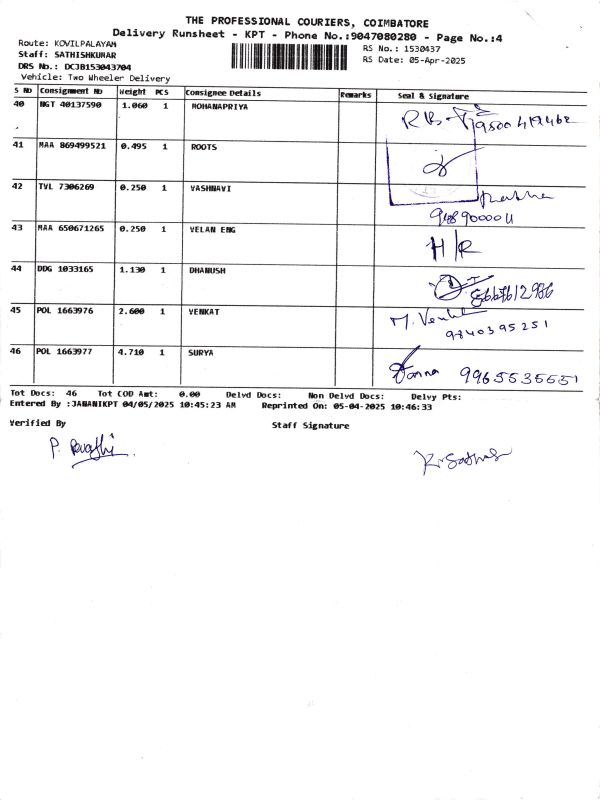 THE PROFESSIONAL COURIERS, COIMBATORE
Delivery Runsheet - KPT - Phone No.:9047080280 - Page No.:4
Route: KOVILPALAYAM
Staff: SATHISHKUMAR
DRS No.: DCJB153043704
Vehicle: Two Wheeler Delivery
RS No.: 1530437
RS Date: 05-Apr-2025
S No Consignment No Weight PCS Consignee Details Remarks Seal & Signature
40 NGT 40137590 1.060 1 MOHANAPRIYA
41 MAA 869499521 0.495 1 ROOTS
42 TVL 7306269 0.250 1 VASHNAVI
43 MAA 650671265 0.250 1 VELAN ENG H/R
44 DDG 1033165 1.130 1 DHANUSH
45 POL 1663976 2.600 1 VENKAT M. Venkat
9840395251
46 POL 1663977 4.710 1 SURYA 9965535551
Tot Docs: 46 Tot COD Amt: 0.00 Delvd Docs: Non Delvd Docs: Delvy Pts:
Entered By :JANANIKPT 04/05/2025 10:45:23 AM Reprinted On: 05-04-2025 10:46:33
Verified By Staff Signature